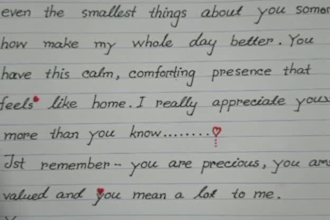 even the smallest things about you some
how make my whole day better. You
have this calm, comforting presence that
feels like home. I really appreciate you
more than you know........
Jst remember - you are precious, you are
valued and you mean a lot to me.